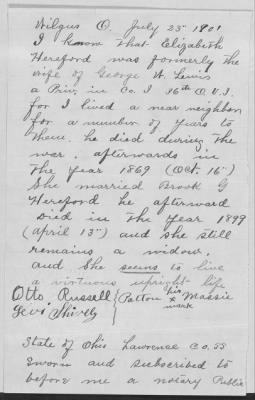 Wilgus O. July 25 1901
I know that Elizabeth
Hereford was formerly the
wife of George W. Lewis
a Priv, in Co. I 36th O.V.I.
for I lived a near neighbor
for a number of years to
them, he died during the
war, afterwards in
the year 1869 (Oct. 16")
She married Brook G
Hereford he afterward
Died in the year 1899
(April 13") and she still
remains a widow,
and She seems to live
a virtuous upright life
Otto Russell
Levi Shively
his
Patton x Massie
mark
State of Ohio Lawrence Co, SS
Sworn and subscribed to
before me a notary Public